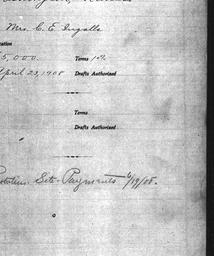 Mrs. C. E. Ingalls
5,000. Terms 1%
April 23, 1908 Drafts Authorized
Terms
Drafts Authorized
Site Payments 6/19/08.